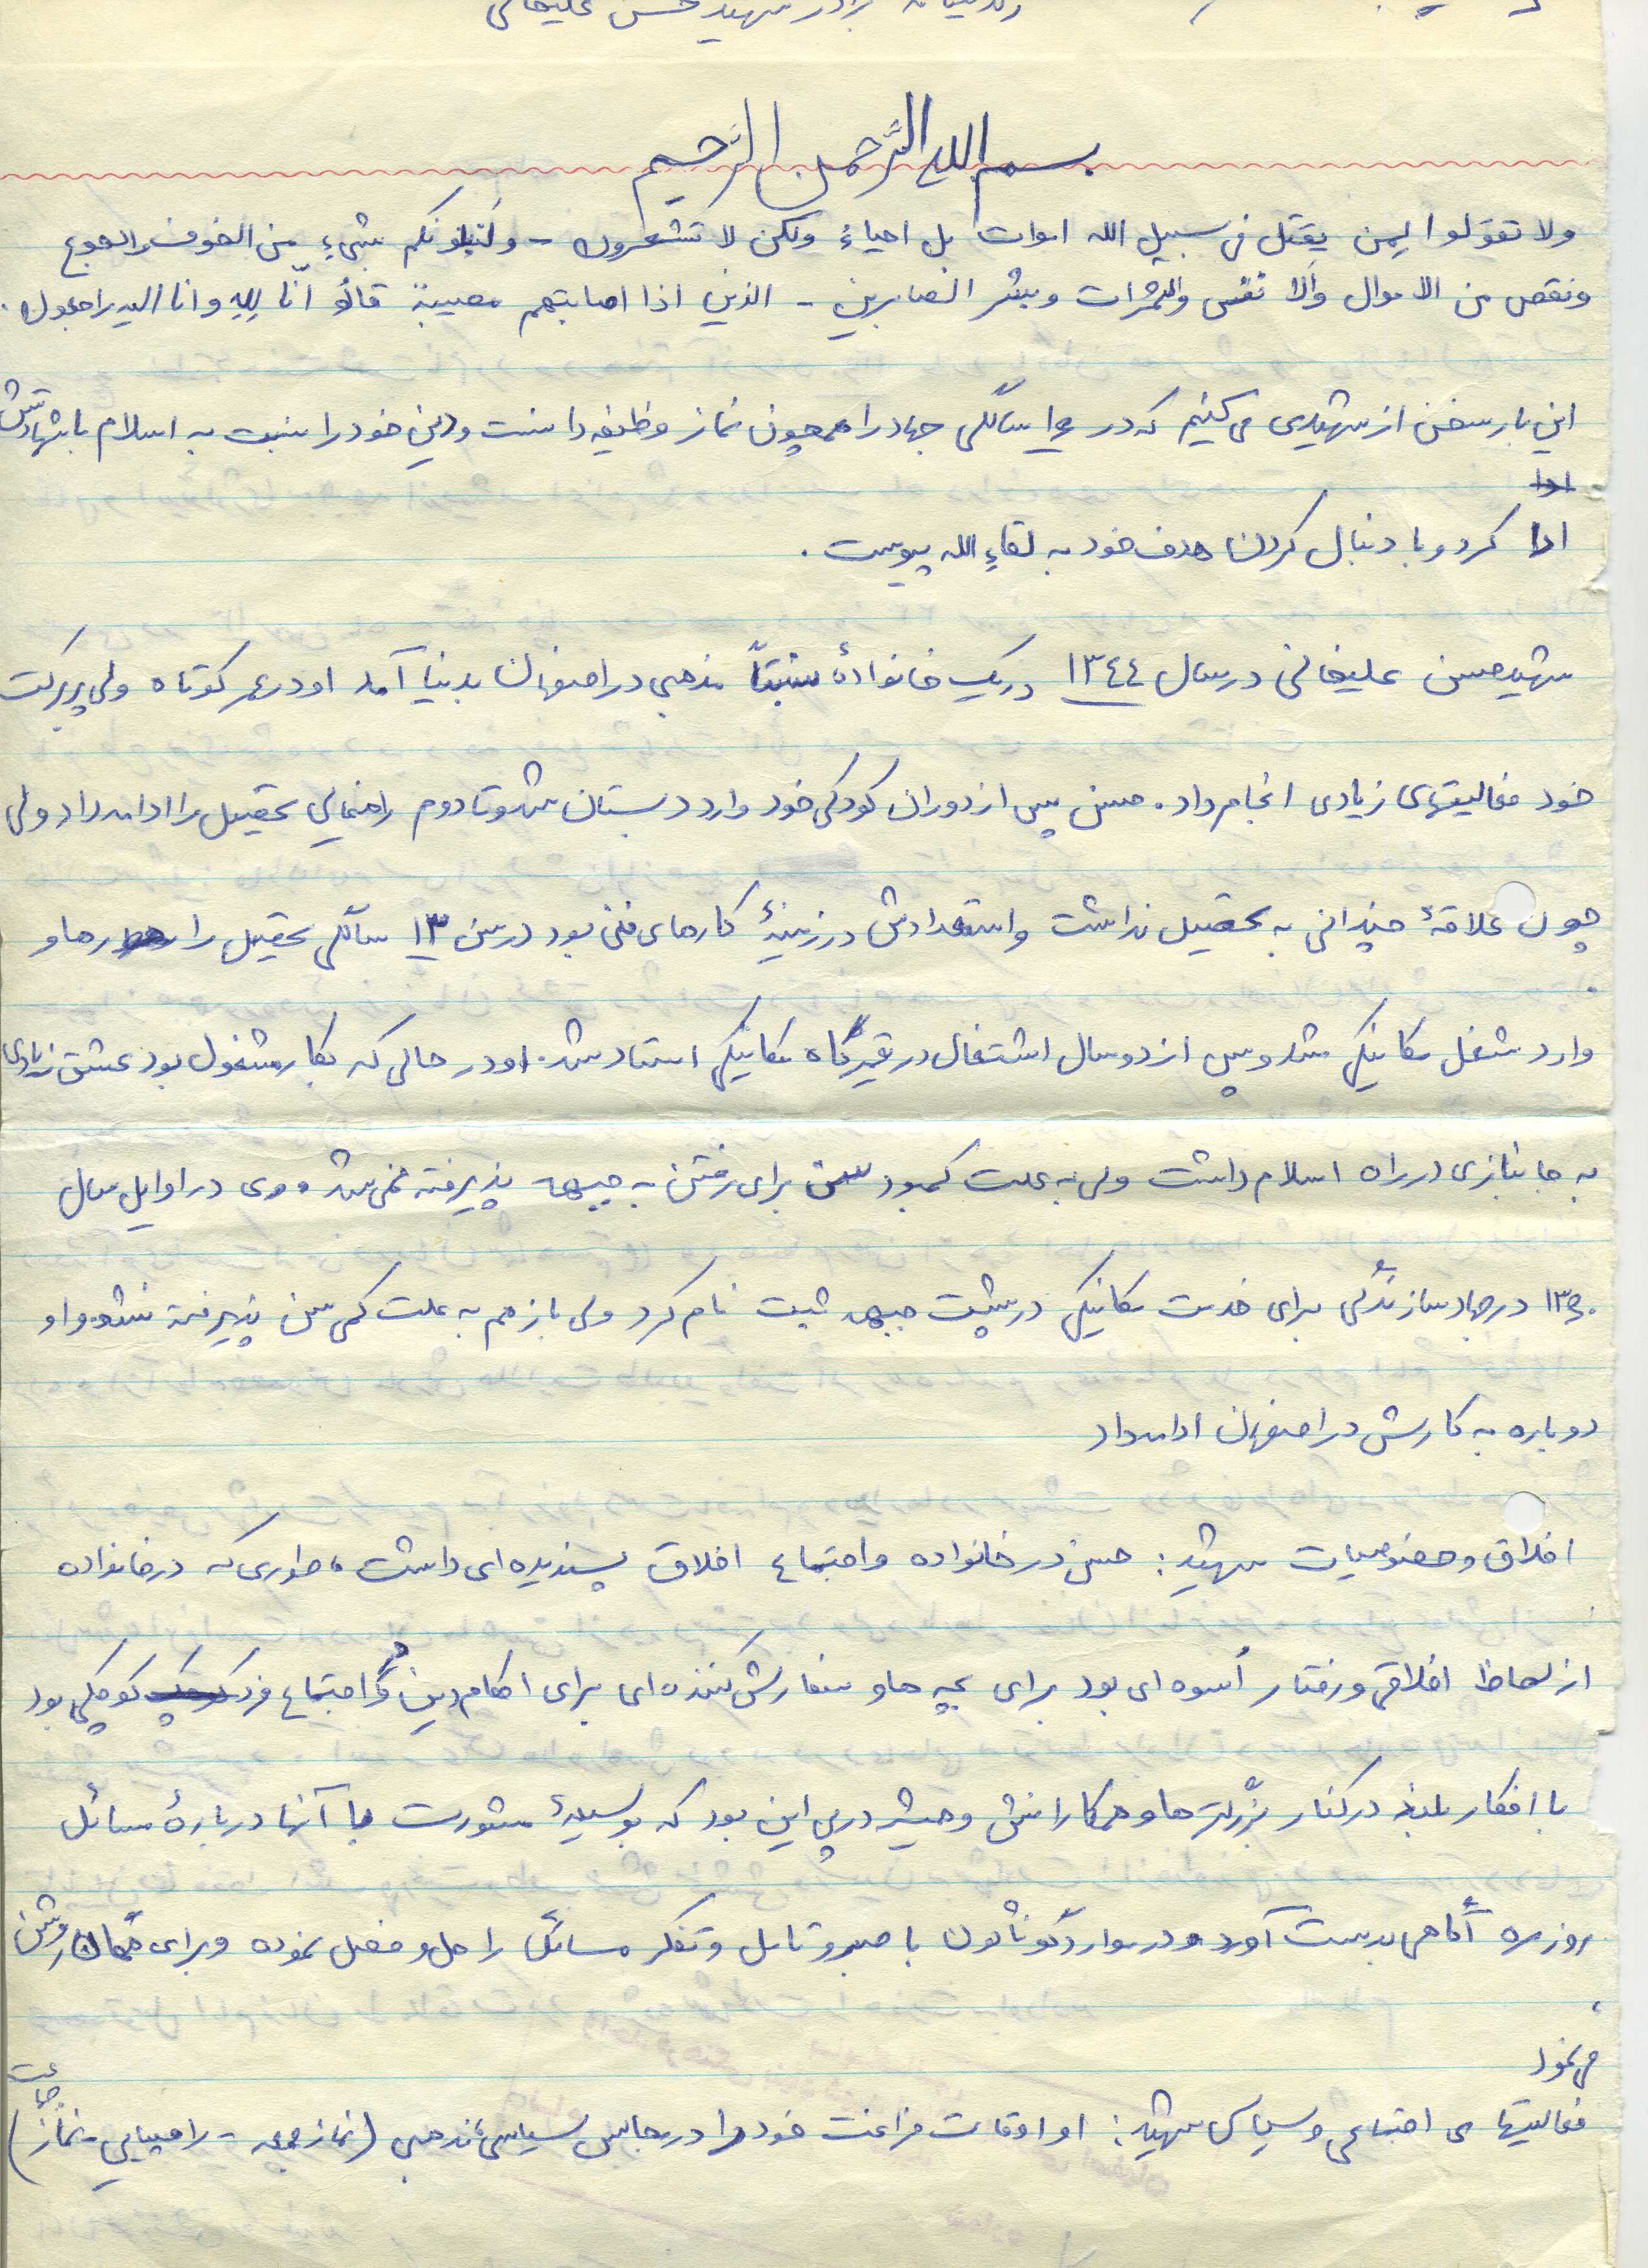 برادر شهید حسن علیخانی
بسم الله الرَّحمن الرَّحیم
ولا تقولوا لِمن یقتل فی سبیل الله اموات بل احیاءُ ولکن لا تشعرون - ولَنبلونکم بشیءٍ مِن الخوف والجوع
ونقص من الاموال والانفس والثمرات وبشر الصابرین - الذین اذا اصابتهم مصیبة قالوُ انّا لِلهِ وانا الیه راجعون.
این بار سخن از شهیدی می کنیم که در سالگی جهاد را همچون نماز وظیفه دانست ودِین خود را نسبت به اسلام با شهادتش
ادا
ادا کرد و با دنبال کردن هدف خود به لقاءِ الله پیوست.
شهید حسن علیخانی در سال ١٣٤٤ در یک خانوادهٔ نسبتاً مذهبی در اصفهان بدنیا آمد او در عمر کوتاه ولی پربرکت
خود فعالیتهای زیادی انجام داد. حسن پس از دوران کودکی خود وارد دبستان شد و تا دوم راهنمایی تحصیل را ادامه داد ولی
چون علاقهٔ چندانی به تحصیل نداشت واستعدادش در زمینهٔ کارهای فنی بود در سن ١٣ سالگی تحصیل را رها و
وارد شغل مکانیکی شد و پس از دو سال اشتغال در تعمیرگاه مکانیکی استاد شد. او در حالی که بکار مشغول بود عشق زیادی
به جانبازی در راه اسلام داشت ولی به علت کمبود سن برای رفتن به جبهه پذیرفته نمی شد و وی در اوایل سال
١٣٥٠ در جهاد سازندگی برای خدمت مکانیکی در پشت جبهه ثبت نام کرد ولی باز هم به علت کمی سن پذیرفته نشد و او
دوباره به کارش در اصفهان ادامه داد
اخلاق و خصوصیات شهید: حسن در خانواده و اجتماع اخلاق پسندیده ای داشت، طوری که در خانواده
از لحاظ اخلاقی و رفتار اُسوه ای بود برای بچه ها و سفارش کننده ای برای احکام دین و در اجتماع فرد کوچک کوچکی بود
با افکار بلند در کنار بزرگترها و همکارانش وهمیشه در پی این بود که بوسیلهٔ مشورت با آنها دربارهٔ مسائل
روزمره آگاهی بدست آورد و در موارد گوناگون با صبر و تامل و تفکر مسائل را حل و فصل نموده و برای روشن
می نمود
فعالیتهای اجتماعی و سیاسی شهید: او اوقات فراغت خود را در مجالس سیاسی، مذهبی (نماز جمعه - راهپیمایی - نماز جماعت)